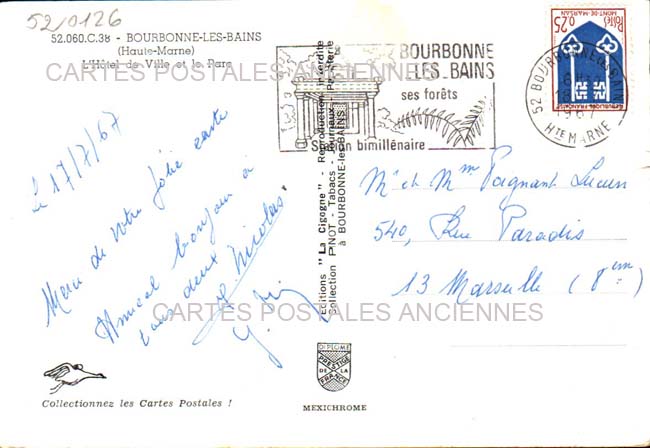 52/0126
52.060.C.38 - BOURBONNE-LES-BAINS
(Haute-Marne)
L'Hôtel de Ville et le Parc
CARTES POSTALES ANCIENNES
Le 17/7/67
Merci de votre jolie carte
Amical bonjour à
vous deux
Nicolas
Collectionnez les Cartes Postales !
Editions "La Cigogne" - Reproduction interdite
Collection PINOT - Tabacs - Journaux - Papeterie
à BOURBONNE-les-BAINS
DIPLOME
PRESTIGE
DE LA
FRANCE
MEXICHROME
BOURBONNE
LES-BAINS
ses forêts
Station bimillénaire
52 BOURBONNE-LES-BAINS
18
1967
HTE MARNE
0,25
Postes
MONT-DE-MARSAN
REPUBLIQUE FRANÇAISE
Mr et Mme Pagnant Lucien
540, Rue Paradis
13 Marseille (8em)
CARTES POSTALES ANCIENNES